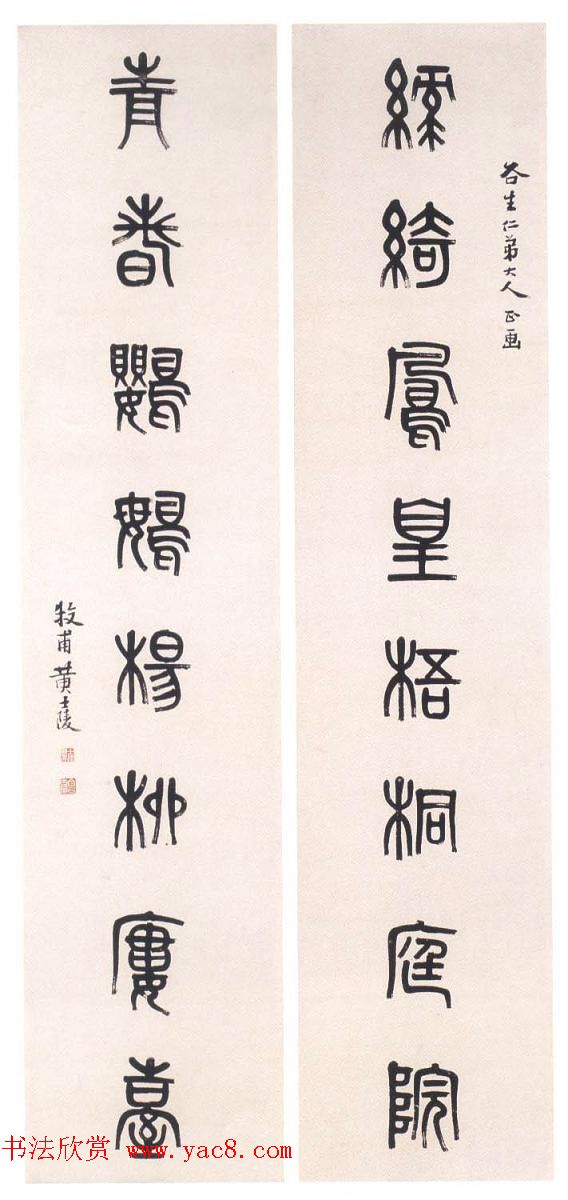 谷生仁弟大人正画
綠綺鳳皇梧桐庭院
青春鸚䳇楊柳廔臺
牧甫黄士陵
书法欣赏 www.yac8.com